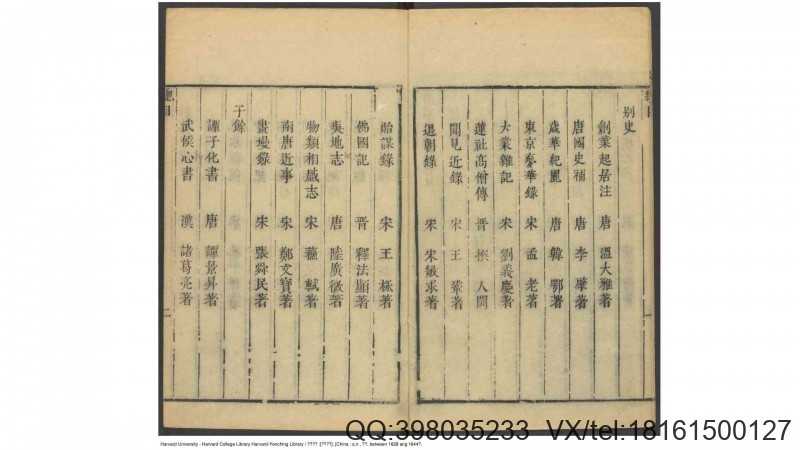 別史
創業起居注 唐 溫大雅著
唐國史補 唐 李肇著
歲華紀麗 唐 韓鄂著
東京夢華錄 宋 孟 老著
大業雜記 宋 劉義慶著
蓮社高僧傳 晉 人闕
聞見近錄 宋 王 著
退朝錄 宋 宋敏求著
貽謀錄 宋 王 栐著
佛國記 晉 釋法顯著
吳地志 唐 陸廣微著
物類相感志 宋 蘇軾著
南唐近事 宋 鄭文寶著
畫墁錄 宋 張舜民著
子餘
譚子化書 唐 譚景昇著
武侯心書 漢 諸葛亮著
Harvard University - Harvard College Library Harvard-Yenching Library / ????. [????]; [China : s.n., ??, between 1628 and 1644?].
QQ:398035233 VX/tel:18161500127